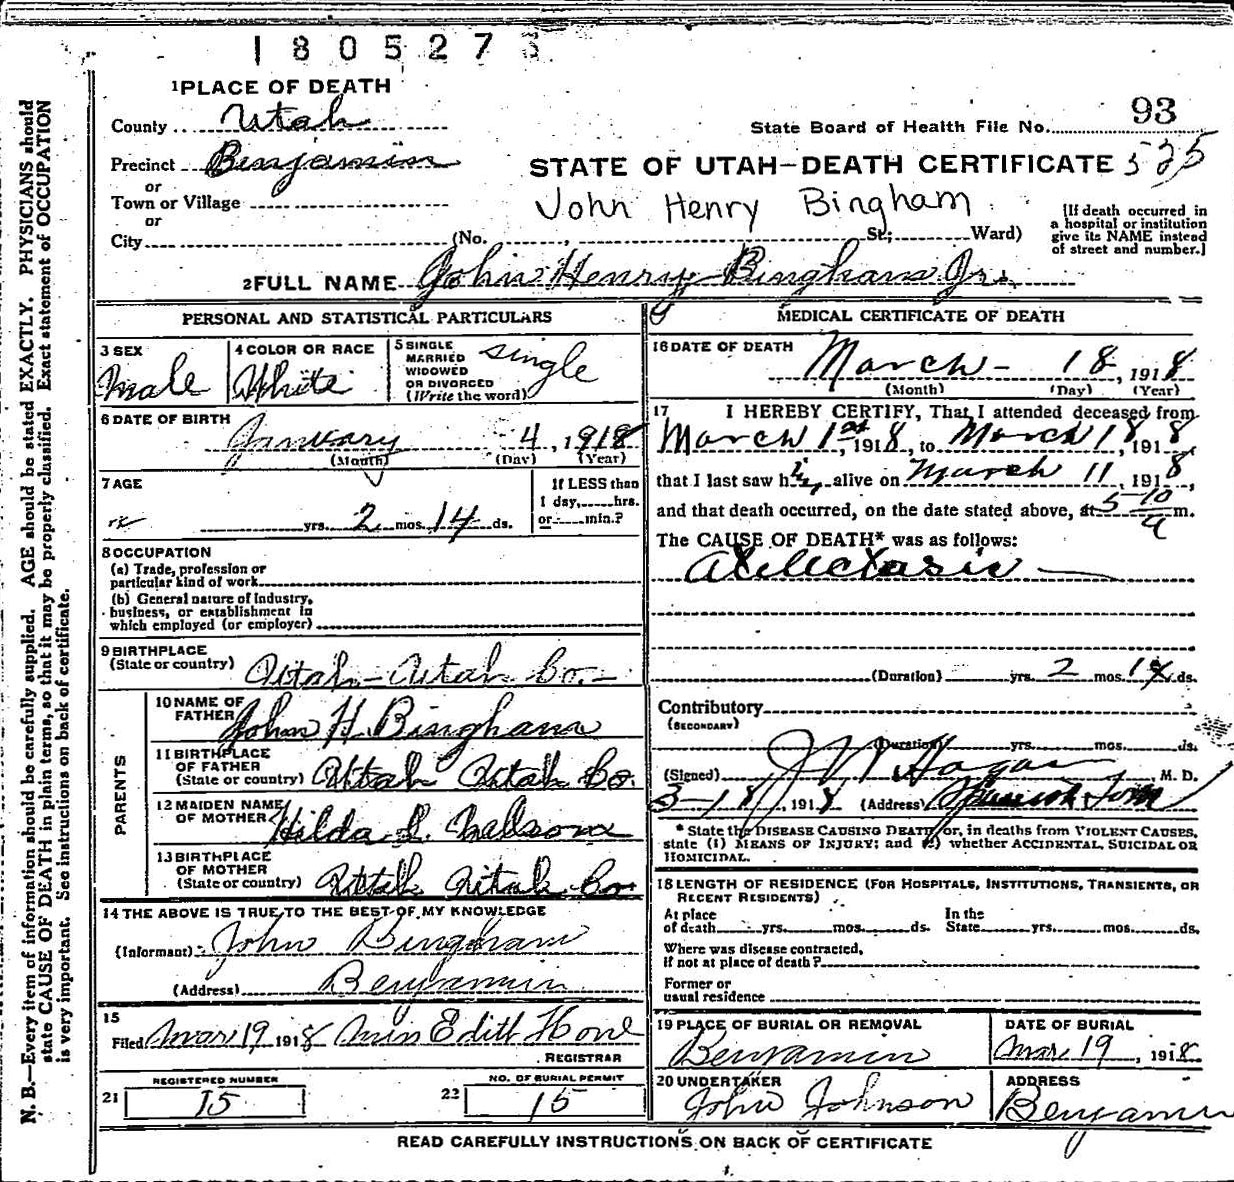 1805273
1 PLACE OF DEATH
County Utah
93
State Board of Health File No.
Precinct Benjamin
STATE OF UTAH—DEATH CERTIFICATE 525
or
Town or Village
John Henry Bingham
or
[If death occurred in
a hospital or institution
give its NAME instead
of street and number.]
City (No. , St; Ward)
2 FULL NAME John Henry Bingham Jr.
PERSONAL AND STATISTICAL PARTICULARS
3 SEX
Male
4 COLOR OR RACE
White
5 SINGLE
MARRIED
WIDOWED
OR DIVORCED
(Write the word)
single
6 DATE OF BIRTH
January 4, 1918
(Month) (Day) (Year)
7 AGE
If LESS than
1 day, hrs.
or min.?
yrs. 2 mos. 14 ds.
8 OCCUPATION
(a) Trade, profession or
particular kind of work
(b) General nature of Industry,
business, or establishment in
which employed (or employer)
9 BIRTHPLACE
(State or country) Utah - Utah Co.
PARENTS
10 NAME OF
FATHER John H. Bingham
11 BIRTHPLACE
OF FATHER
(State or country) Utah Utah Co.
12 MAIDEN NAME
OF MOTHER Hilda
13 BIRTHPLACE
OF MOTHER
(State or country) Utah Utah Co
14 THE ABOVE IS TRUE TO THE BEST OF MY KNOWLEDGE
(Informant) John Bingham
(Address) Benjamin
15
Filed Mar 19 1918 Edith Hone
REGISTRAR
REGISTERED NUMBER
21 15
NO. OF BURIAL PERMIT
22 15
MEDICAL CERTIFICATE OF DEATH
16 DATE OF DEATH
March - 18, 1918
(Month) (Day) (Year)
17 I HEREBY CERTIFY, That I attended deceased from
March 1st, 1918, to March 18 1918,
that I last saw him alive on March 11, 1918,
and that death occurred, on the date stated above, at 5 10 a m.
The CAUSE OF DEATH* was as follows:
Atelectasis
(Duration) yrs. 2 mos. 14 ds.
Contributory
(SECONDARY)
(Duration) yrs. mos. ds.
(Signed) Hagan M. D.
3-18, 1918 (Address) Spanish Fork
* State the DISEASE CAUSING DEATH, or, in deaths from VIOLENT CAUSES,
state (1) MEANS OF INJURY; and (2) whether ACCIDENTAL, SUICIDAL OR
HOMICIDAL.
18 LENGTH OF RESIDENCE (FOR HOSPITALS, INSTITUTIONS, TRANSIENTS, OR
RECENT RESIDENTS)
At place
of death yrs. mos. ds.
In the
State yrs. mos. ds.
Where was disease contracted,
if not at place of death?
Former or
usual residence
19 PLACE OF BURIAL OR REMOVAL
Benjamin
DATE OF BURIAL
Mar 19, 1918
20 UNDERTAKER
John Johnson
ADDRESS
Benjamin
READ CAREFULLY INSTRUCTIONS ON BACK OF CERTIFICATE
N. B.—Every item of information should be carefully supplied. AGE should be stated EXACTLY. PHYSICIANS should
state CAUSE OF DEATH in plain terms, so that it may be properly classified. Exact statement of OCCUPATION
is very important. See instructions on back of certificate.